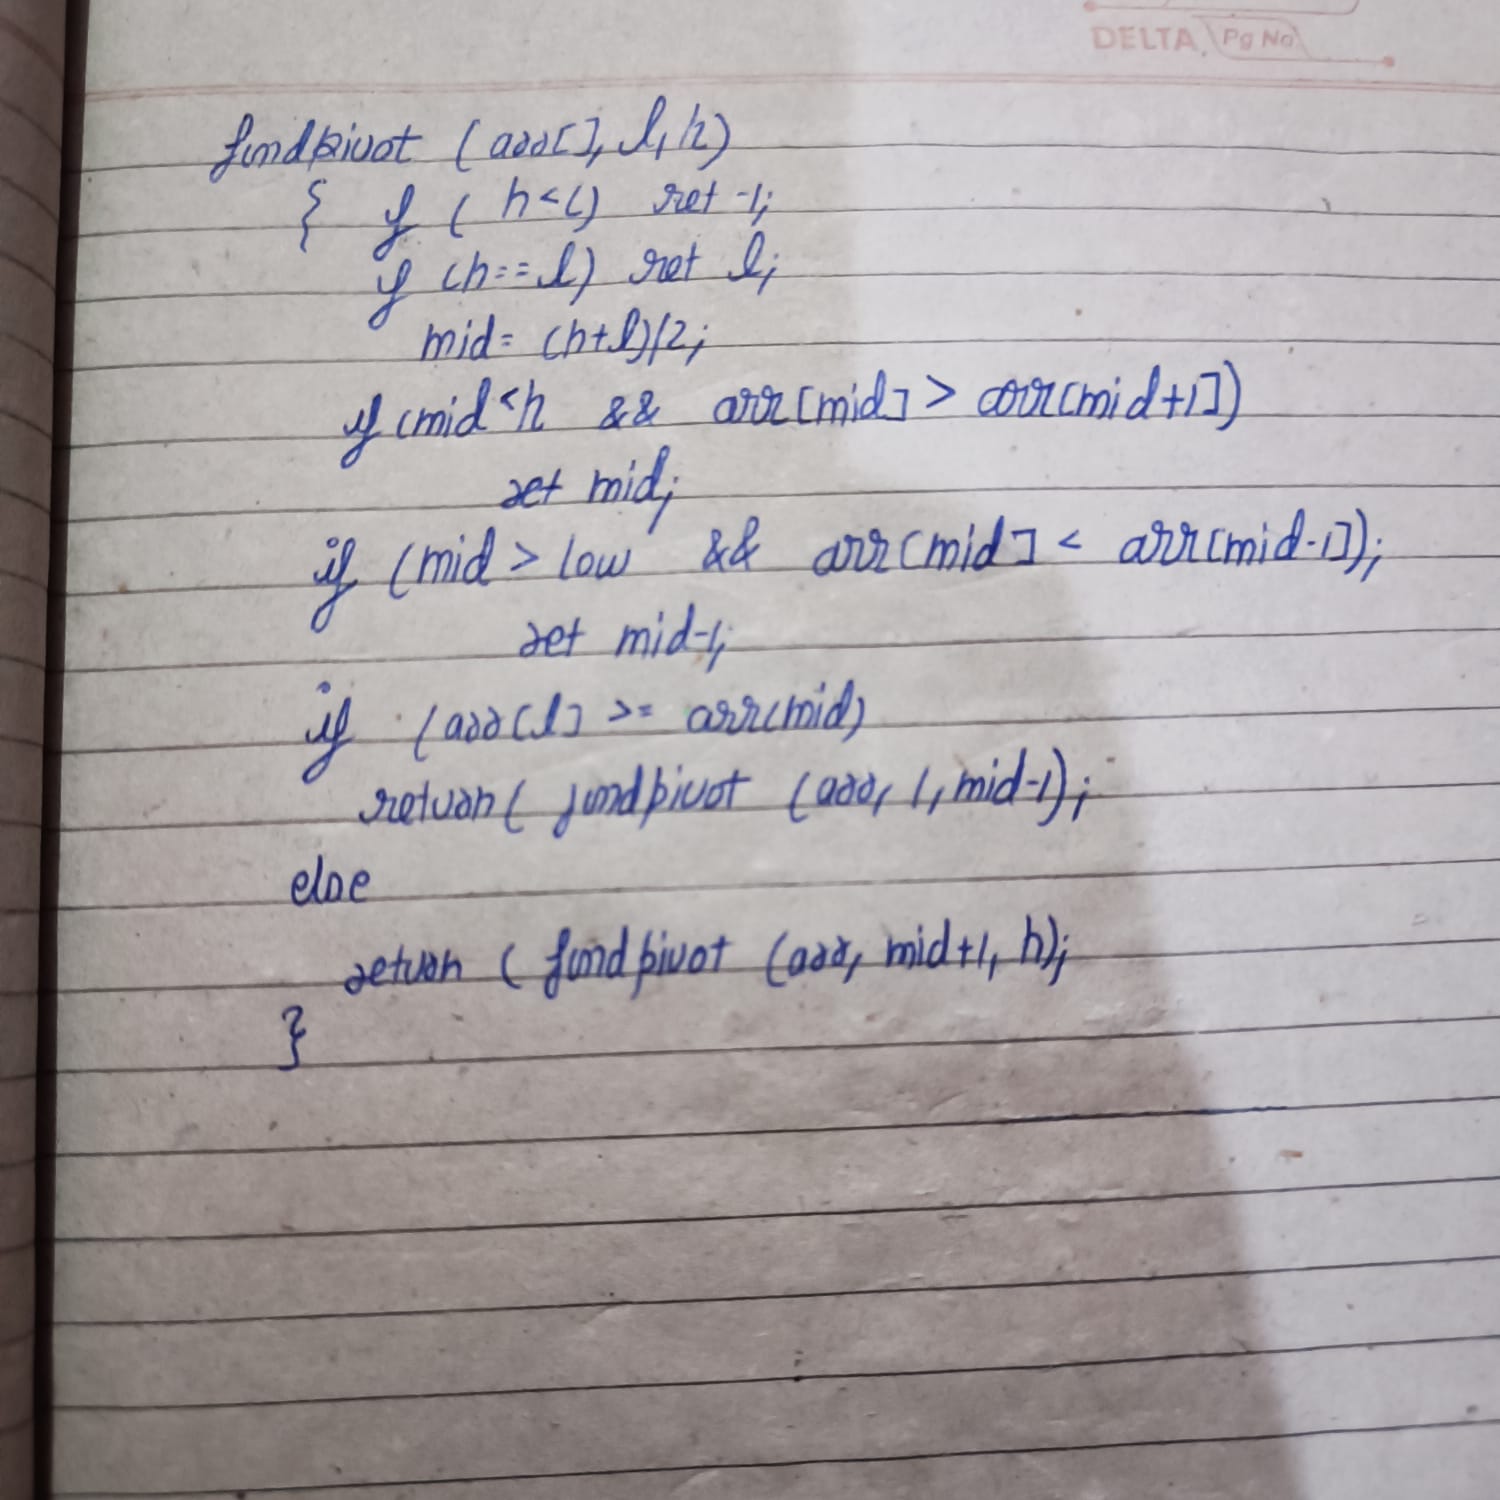 DELTA Pg No
findpivot (arr[], l, h)
{ if ( h<l) ret -1;
if (h==l) ret l;
mid= (h+l)/2;
if (mid<h && arr[mid] > arr[mid+1])
ret mid;
if (mid > low && arr[mid] < arr[mid-1]);
ret mid-1;
if (arr[l] >= arr(mid)
return( findpivot (arr, l, mid-1);
else
return ( findpivot (arr, mid+1, h);
}